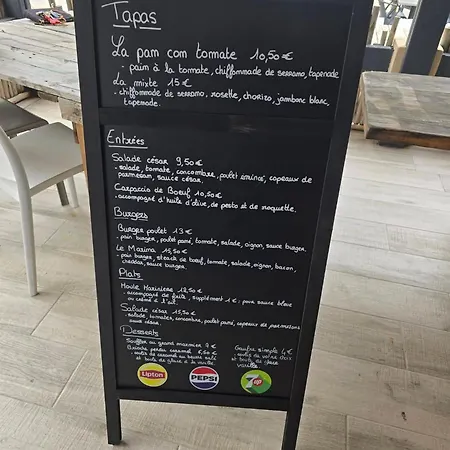 Tapas
La pam com tomate 10,50€
- pain à la tomate, chiffonnade de serrano, tapenade
La mixte 15€
- chiffonnade de serrano, rosette, chorizo, jambon blanc,
tapenade.
Entrées
Salade césar 9,50€
- salade, tomate, concombre, poulet émincé, copeaux de
parmesan, sauce césar.
Carpaccio de Boeuf 10,50€
- accompagné d'huile d'olive, de pesto et de roquette.
Burgers
Burger poulet 13€
- pain burger, poulet pané, tomate, salade, oignon, sauce burger.
Le Marina 15,50€
- pain burger, steack de boeuf, tomate, salade, oignon, bacon,
cheddar, sauce burger.
Plats
Moule Marinière 12,50€
- accompagné de frite, supplément 1€: pour sauce bleue
ou crème à l'ail.
Salade césar 15,50€
- salade, tomates, concombre, poulet pané, copeaux de parmesan
sauce césar.
Desserts
Soufflé au grand marnier 7€
Brioche perdue caramel 6,50€
- sortie de caramel au beurre salé
et boule de glace à la vanille.
Gaufre simple 4€
- sortie de votre choix
et boule de glace
vanille.
Lipton
PEPSI
7up